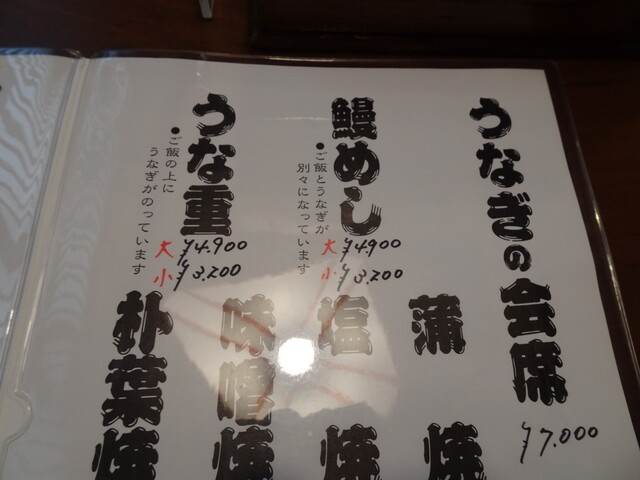 うなぎの会席
¥7,000
鰻めし
●ご飯とうなぎが
別々になっています
大 ¥4,900
小 ¥3,200
うな重
●ご飯の上に
うなぎがのっています
大 ¥4,900
小 ¥3,200
蒲焼
塩焼
味噌焼
朴葉焼